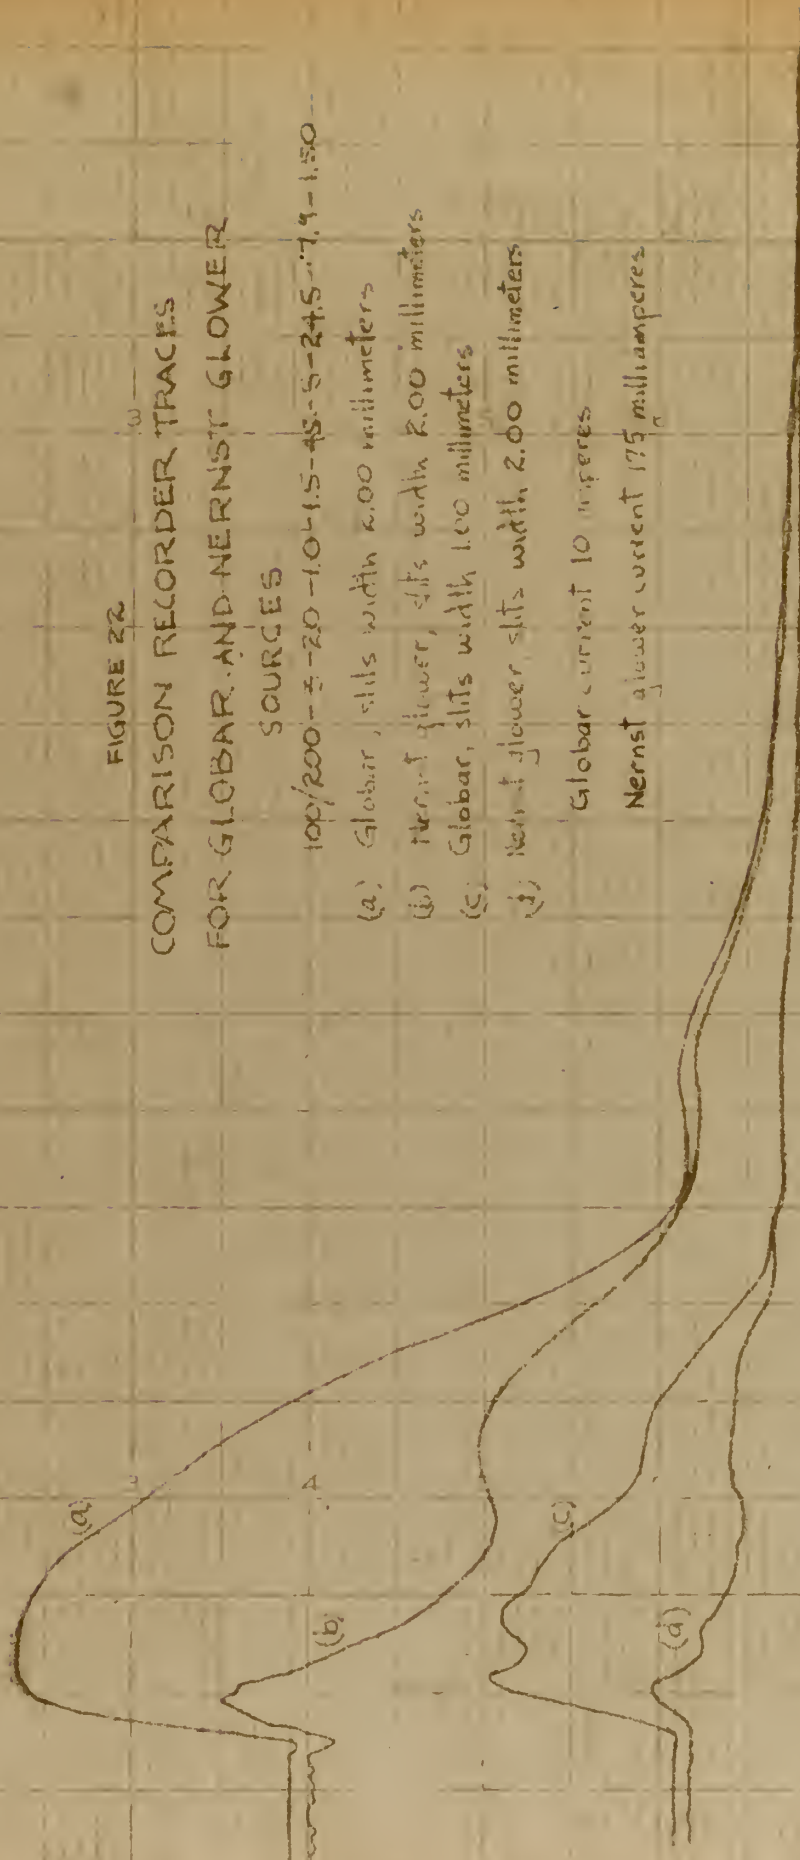 FIGURE 22
COMPARISON RECORDER TRACES
FOR GLOBAR AND NERNST GLOWER
SOURCES
(a) Globar, slits width 2.00 millimeters
(b) Nernst glower, slits width 2.00 millimeters
(c) Globar, slits width 1.00 millimeters
(d) Nernst glower, slits width 2.00 millimeters
Globar current 10 amperes
Nernst glower current 175 milliamperes
(a)
(b)
(c)
(d)